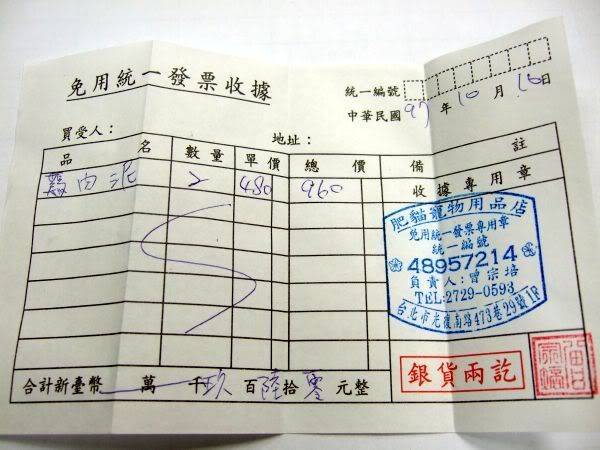 免用統一發票收據
統一編號
中華民國 97 年 10 月 16 日
買受人： 地址：
品名 數量 單價 總價 備註
雞肉泥 2 480 960 收據專用章
肥貓寵物用品店
免用統一發票專用章
統一編號
48957214
負責人：曾宗培
TEL:2729-0593
台北市光復南路473巷29號1F
銀貨兩訖
合計新臺幣 萬 千 玖 百 陸 拾 零 元整